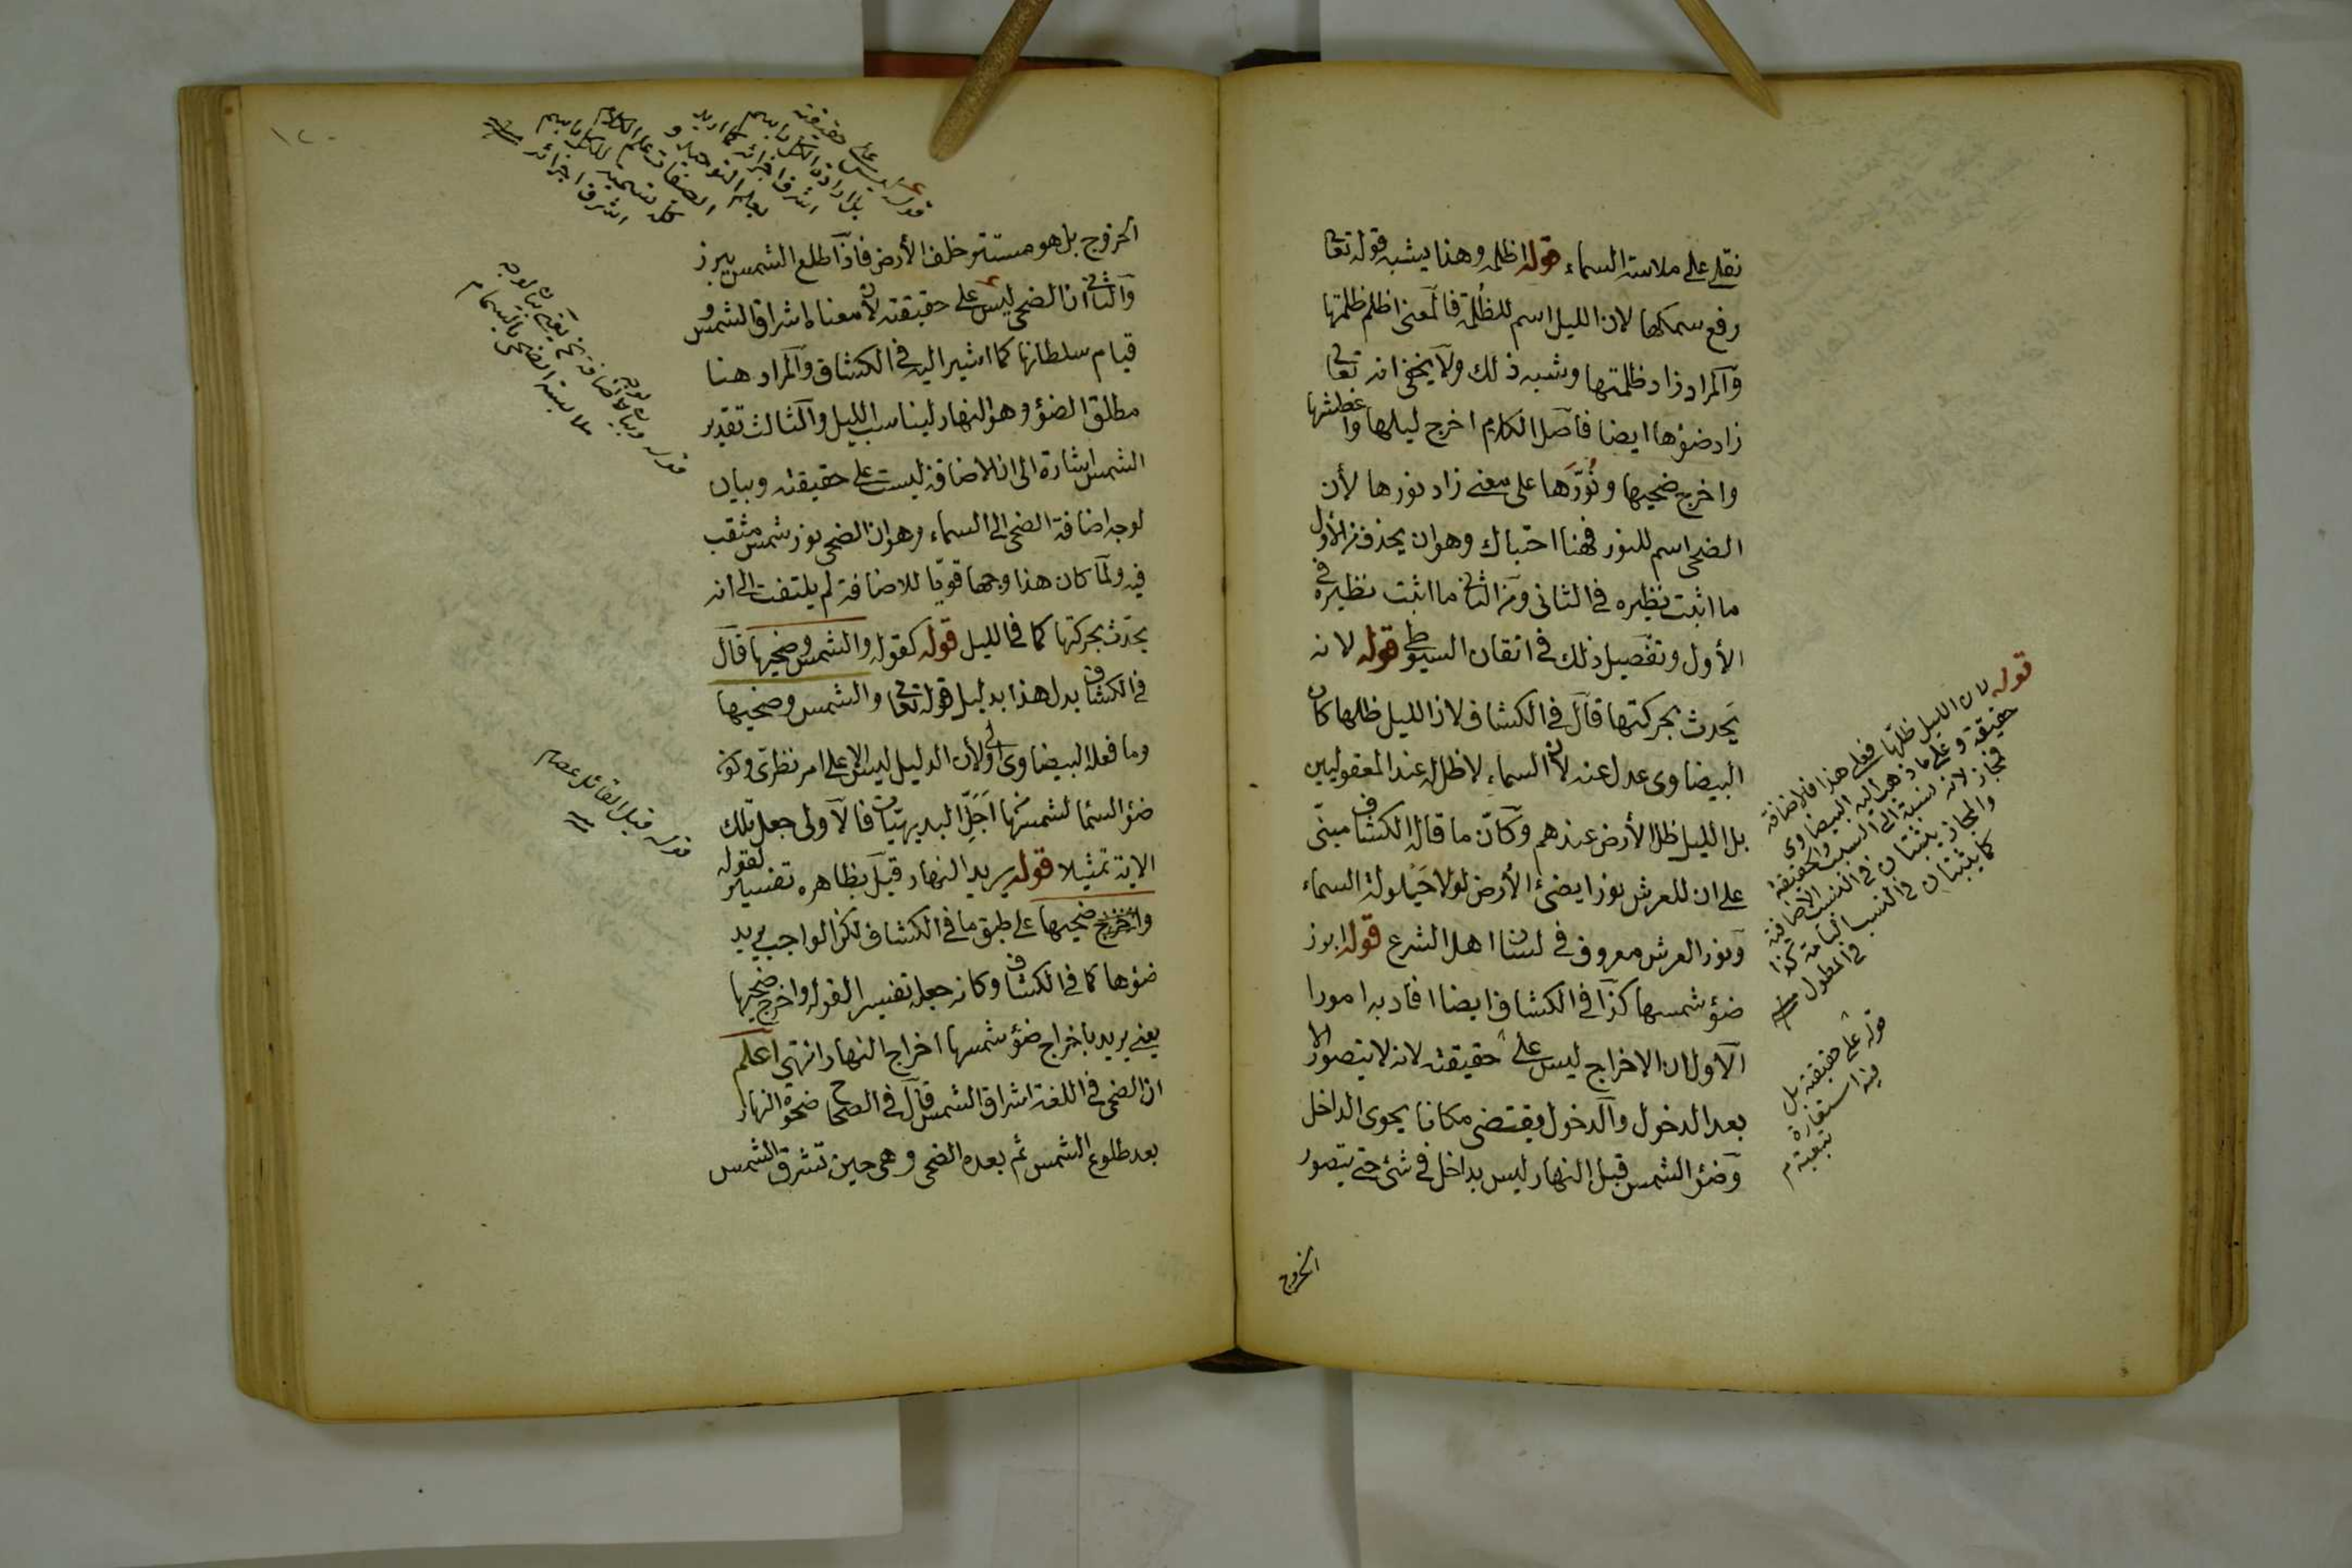 نقلي على ملاسة السماء قوله اظلم وهذا يشبه قوله تعالى
رفع سمكها لان الليل اسم للظلمة فالمعنى اظلم ظلمتها
والمراد زاد ظلمتها وشبه ذلك ولا يخفى انه تعالى
زاد ضؤها ايضا فاصل الكلام اخرج ليلها واغطشها
واخرج ضحيها ونورها على معنى زاد نورها لأن
الضحى اسم للنور فهنا احتباك وهو ان يحذف من الأول
ما اثبت نظيره في الثاني ومن الثاني ما اثبت نظيره في
الأول وتفصيل ذلك في اتقان السيوطي قوله لانه
يحدث بحركتها قال في الكشاف لان الليل ظلها كان
البيضاوى عدل عنه لان السماء لا ظل له عند المعقوليين
بل الليل ظل الأرض عندهم وكأن ما قاله الكشاف مبنى
على ان للعرش نورا يضئ الأرض لولا حيلولة السماء
ونور العرش معروف في لسان اهل الشرع قوله ابرز
ضؤ شمسها كذا في الكشاف ايضا افاد به امورا
الأول ان الاخراج ليس على حقيقته لانه لا يتصور الا
بعد الدخول والدخول يقتضى مكانا يحوى الداخل
وضؤ الشمس قبل النهار ليس بداخل في شئ حتى يتصور
الخروج
قوله لان الليل ظلها فعلى هذا فالاضافة
حقيقة وعلى ما ذهب اليه البيضاوى
فمجاز لانه نسبة الى السبب والحقيقة
والمجاز يثبتان في النسب الاضافية
كما يثبتان في النسب التامة كذا
في المطول منه
قوله على حقيقته بل
فيه استعارة
تبعية م
الخروج بل هو مستتر خلف الأرض فاذا طلع الشمس يبرز
والثاني ان الضحى ليس على حقيقته لان معناه اشراق الشمس و
قيام سلطانها كما اشير اليه في الكشاف والمراد هنا
مطلق الضؤ وهو النهار ليناسب الليل والثالث تقدير
الشمس اشارة الى ان الاضافة ليست على حقيقته وبيان
لوجه اضافة الضحى الى السماء وهو ان الضحى نور شمس مثقب
فيه ولما كان هذا وجها قويا للاضافة لم يلتفت الى انه
يحدث بحركتها كما في الليل قوله كقوله والشمس وضحيها قال
في الكشاف بدل هذا بدليل قوله تعالى والشمس وضحيها
وما فعله البيضاوى اولى لأن الدليل ليس الا على امر نظرى وكون
ضؤ السماء لشمسها اجل البديهيات فالأولى جعل تلك
الاية تمثيلا قوله يريد النهار قيل بظاهره تفسير لقوله
واخرج ضحيها على طبق ما في الكشاف لكن الواجب يريد
ضؤها كما في الكشاف وكانه جعله تفسيرا لقوله واخرج ضحيها
يعني يريد باخراج ضؤ شمسها اخراج النهار انتهى اعلم
ان الضحى في اللغة اشراق الشمس قال في الصحاح ضحوة النهار
بعد طلوع الشمس ثم بعده الضحى وهى حين تشرق الشمس
قوله ليس على حقيقته
بل اراد الكل باسم
اشرف اجزائه كما اريد
بعلم التوحيد و
الصفات علم الكلام
كله تسمية للكل باسم
اشرف اجزائه منه
ملابسة الضحى بالسماء م
قوله قيل القائل عصام